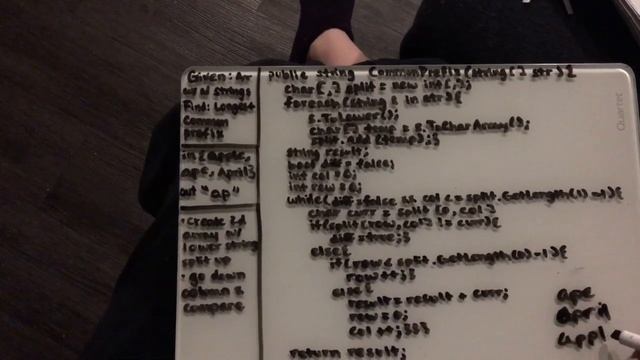 Given: Arr
w/ strings
Find: Longest
common
prefix
in {apple,
ape, April}
out "ap"
• create 2d
array w/
lower string
split up
• go down
columns
compare
public string CommonPrefix(string[] str){
char[,] split = new int[,];
foreach(string s in str){
s.ToLower();
char[] temp = s.ToCharArray();
split.add(temp);}
string result;
bool diff = false;
int col = 0;
int row = 0;
while(diff=false && col <= split.GetLength(1)-1){
char curr = split[0, col]
if(split[row,col] != curr){
diff=true;}
else{
if(row < split.GetLength(0)-1){
row++;}
else{
result = result + curr;
row = 0;
col ++;}}}
return result;
ape
April
appl
Quartet